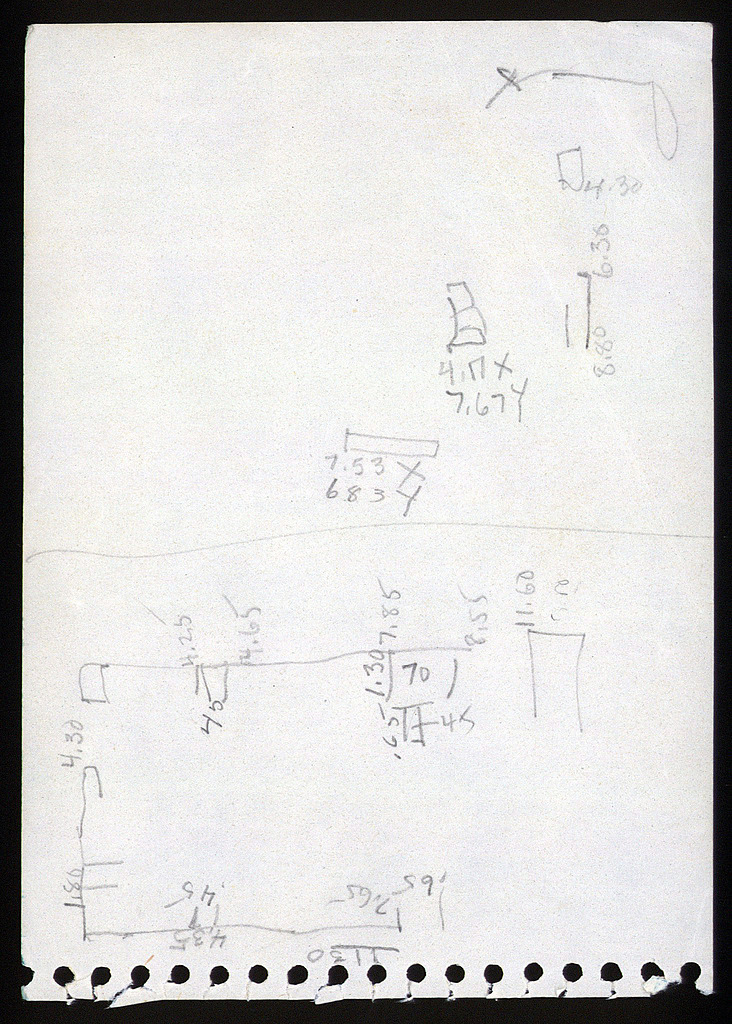 X
4.30
6.30
8.80
4.17 X
7.67 Y
7.53 X
6 8 3 Y
4.25
4.65
7.85
8.55
11.60
1.30
70
45
.65
45
4.30
1.80
.45
435
7.65
.65
1130